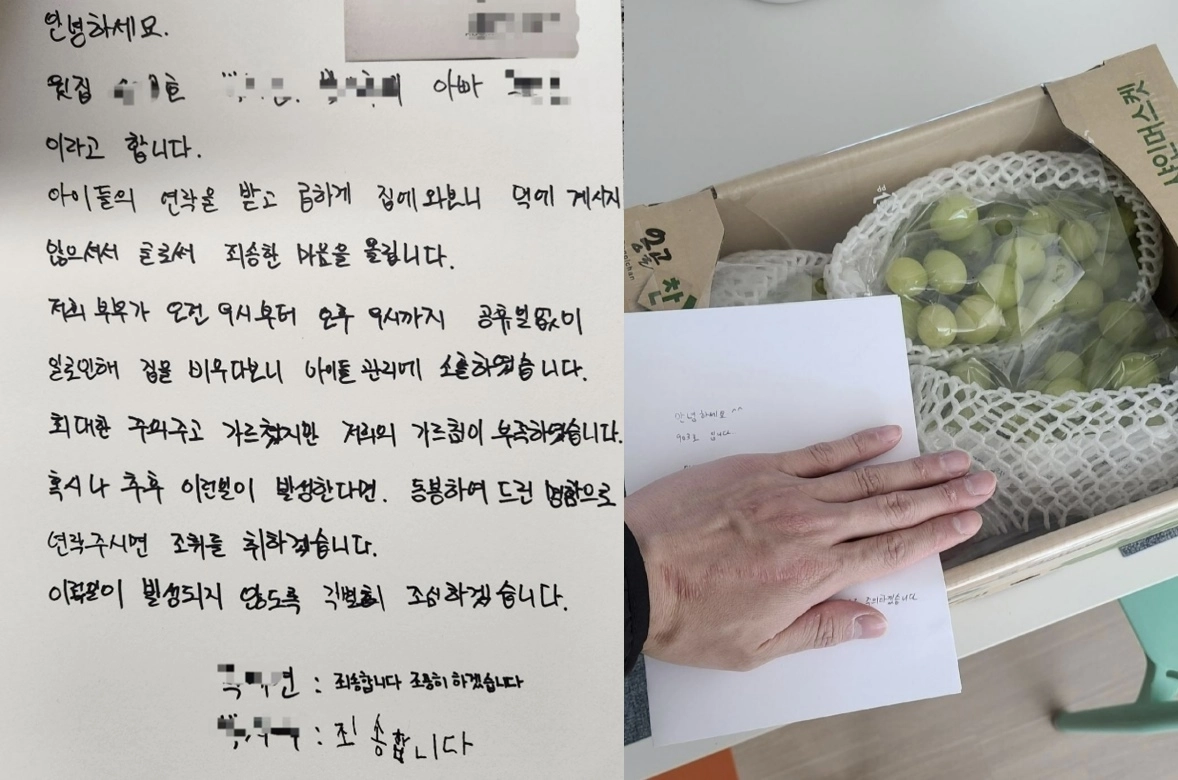 안녕하세요.
윗집 호 아빠
이라고 합니다.
아이들의 연락을 받고 급하게 집에 와보니 댁에 계시지
않으셔서 글로써 죄송한 마음을 올립니다.
저희 부부가 오전 9시부터 오후 9시까지 공휴일없이
일로인해 집을 비우다보니 아이들 관리에 소홀하였습니다.
최대한 주의주고 가르쳤지만 저희의 가르침이 부족하였습니다.
혹시나 추후 이런일이 발생한다면. 동봉하여 드린 명함으로
연락주시면 조취를 취하겠습니다.
이런일이 발생되지 않도록 각별히 조심하겠습니다.
: 죄송합니다 조용히 하겠습니다
: 죄송합니다
샤인머스켓
안녕하세요^^
903호 입니다.
주의하겠습니다